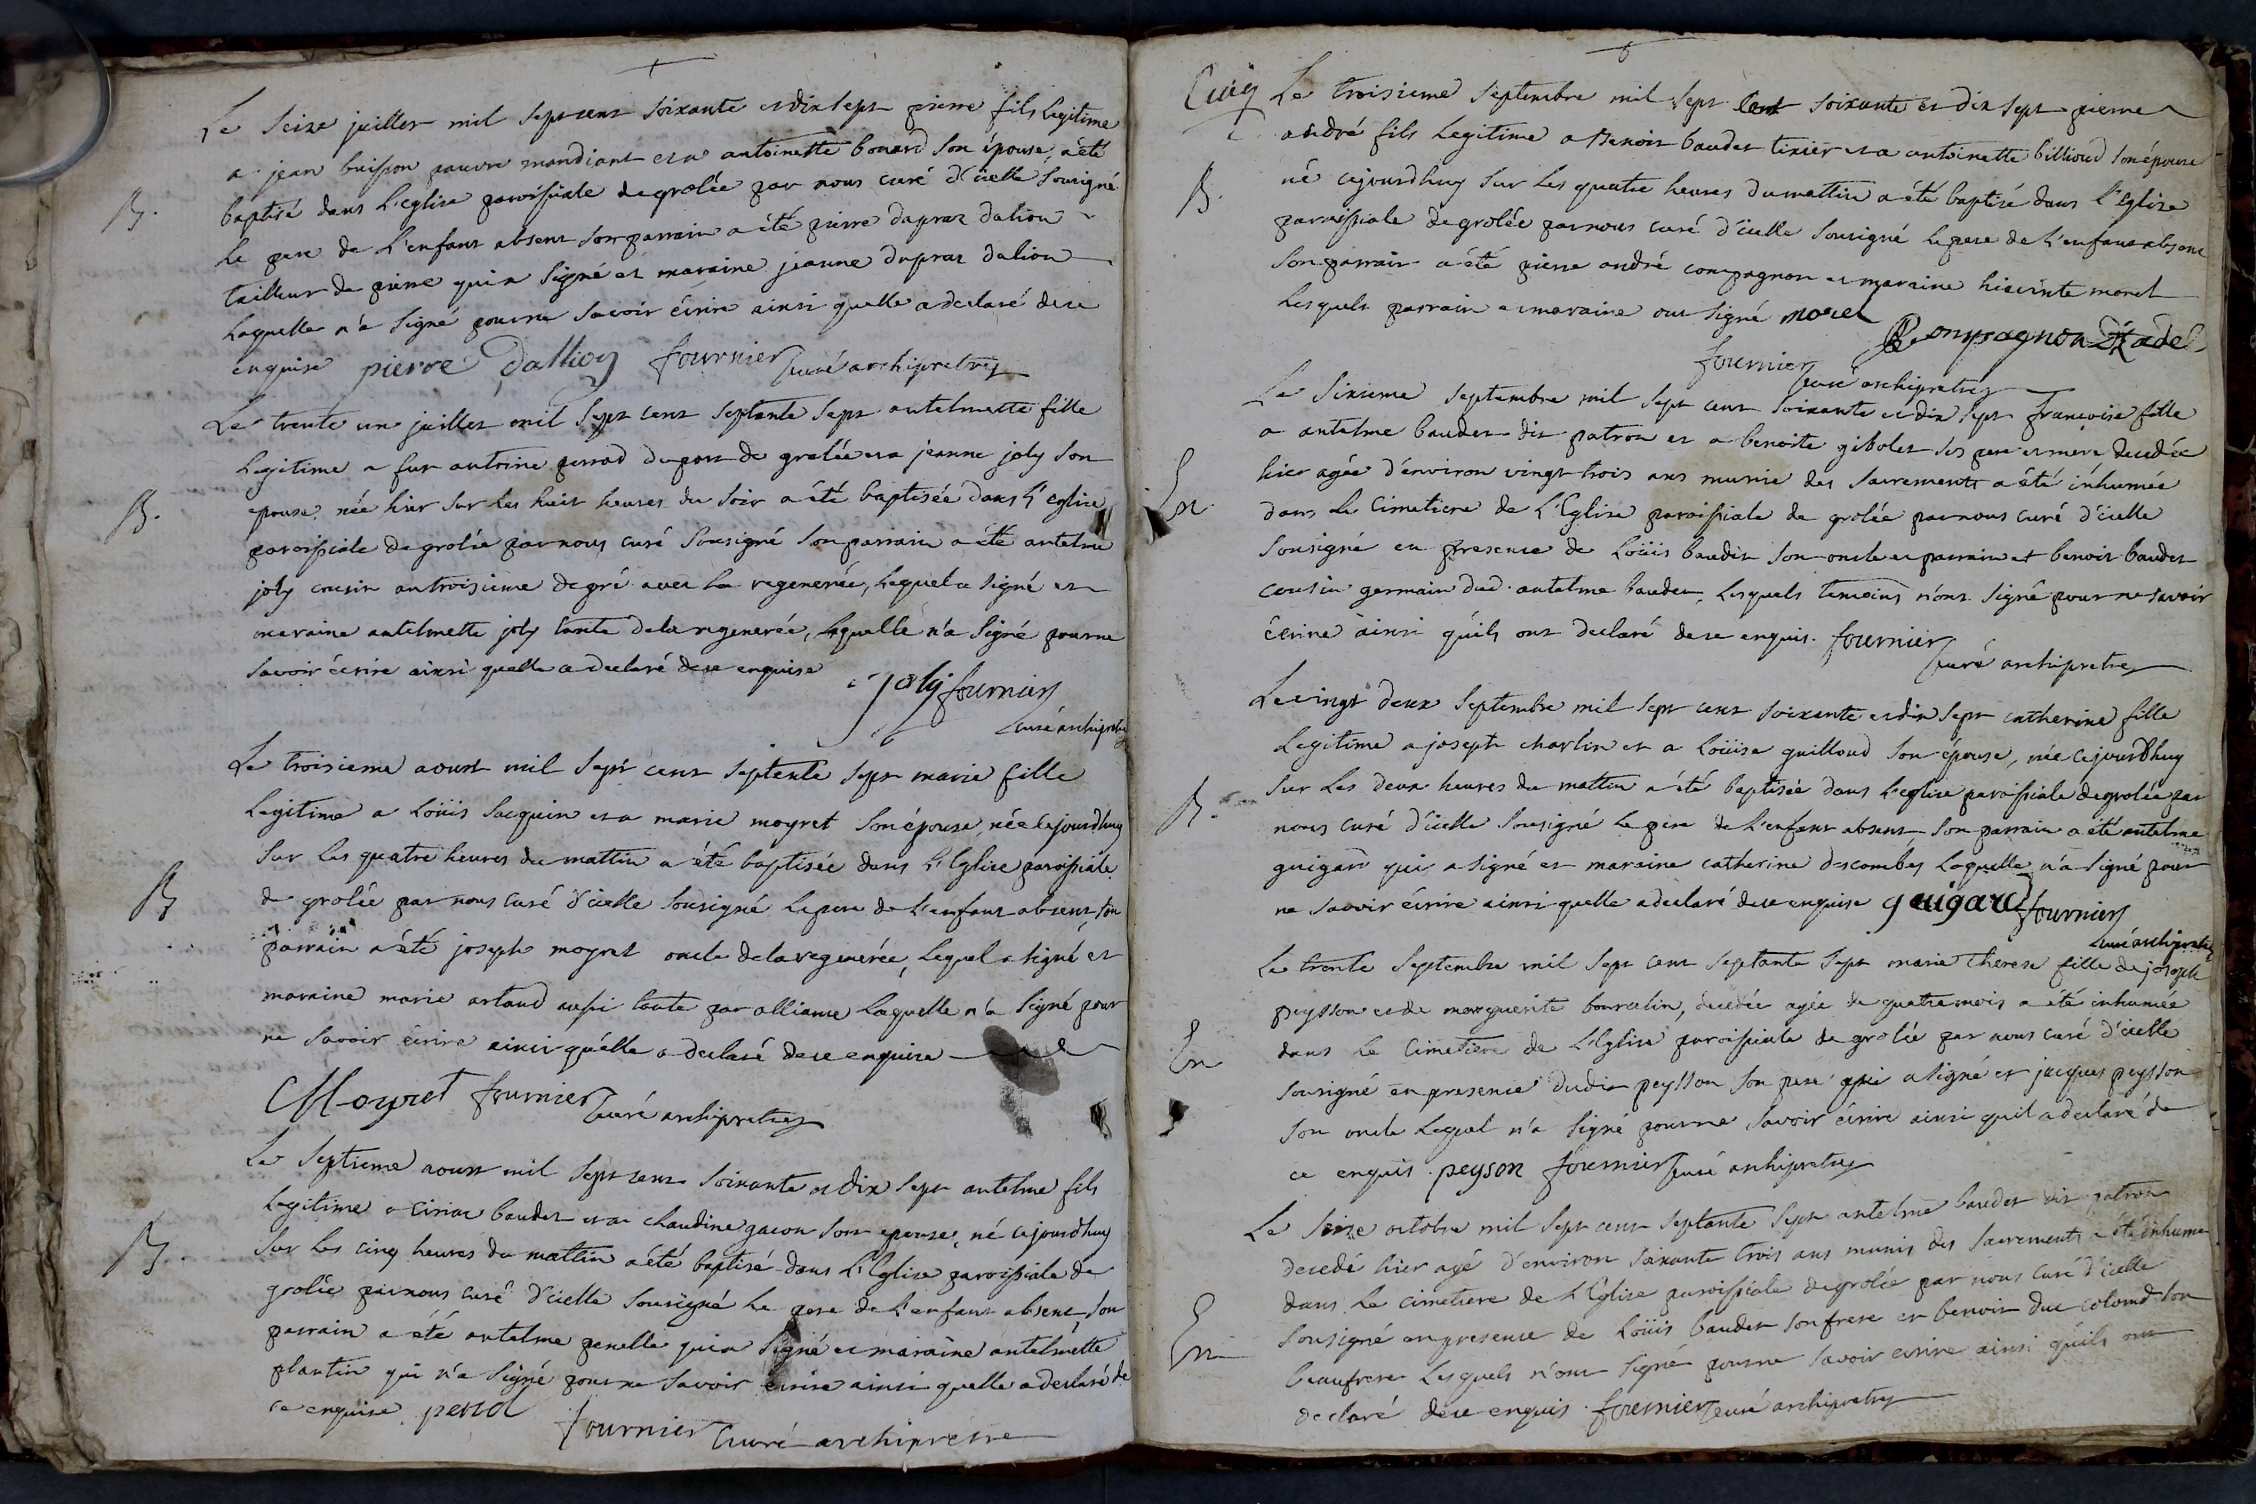 Le seize juillet mil sept cent soixante et dix sept pierre fils legitime
a jean buisson pauvre mandiant et a antoinette bonard son épouse, a été
B.
baptisé dans L'eglise paroissiale de grolée par nous curé d'icelle sousigné
le pere de L'enfant absent son parrain a été pierre dupraz dalion
tailleur de pierre qui a signé et maraine jeanne dupraz dalion
Laquelle n'a signé pour ne savoir écrire ainsi quelle a declaré de ce
enquise pierre Dallion fournier curé archipretre
Le trente un juillet mil sept cent septante sept antelmette fille
Legitime a fut antoine perrod du port de grolée et a jeanne joly son
epouse née hier sur les huit heures du soir a été baptisée dans L'eglise
B.
paroissiale de grolée par nous curé sousigné son parrain a été antelme
joly cousin au troisieme degré avec la regenerée, lequel a signé et
maraine antelmette joly tante de la regenerée, laquelle n'a signé pour ne
savoir écrire ainsi quelle a declaré de ce enquise joly fournier
curé archipretre
Le troisieme aoust mil sept cent septente sept marie fille
Legitime a Loüis Jacquin et a marie moyret son épouse, née cejourdhuy
sur les quatre heures du mattin a été baptisée dans L'Eglise paroissiale
B
de grolée par nous curé d'icelle sousigné Le pere de L'enfant absent, son
parrain a été joseph moyret oncle de la regenerée, Lequel a signé, et
maraine marie artaud aussi tante par alliance Laquelle n'a signé pour
ne savoir écrire ainsi qu'elle a declaré de ce enquise
Moyret fournier curé archipretre
Le septieme aoust mil sept cent soixante et dix sept antelme fils
Legitime a ciriac baudet et a claudine gacon son epouse, né cejourdhuy
sur les cinq heures du mattin a été baptisé dans L'Eglise paroissiale de
B.
grolée par nous curé d'icelle sousigné Le pere de L'enfant absent, son
parrain a été antelme penelle qui a signé et maraine antelmette
plantin qui n'a signé pour ne savoir écrire ainsi quelle a declaré de
ce enquise
fournier curé archipretre
Cuig
Le troisieme septembre mil sept cent soixante et dix sept pierre
andré fils Legitime a Benoit baudet tixier et a antoinette billioud son épouse
né cejourdhuy sur les quatre heures du mattin a été baptisé dans L'Eglise
B.
paroissiale de grolée par nous curé d'icelle sousigné Le pere de L'enfant absent
son parrain a été pierre andré compagnon et maraine hiacinte morel
Lesquels parrain et maraine ont signé morel
Compagnon
fournier curé archipretre
Le sixieme septembre mil sept cent soixante et dix sept francoise fille
a antelme baudet dit patron et a benoite gibolet ses pere et mere decedée
hier agée d'environ vingt trois ans munie des sacrements a été inhumée
En
dans Le Cimetiere de L'Eglise paroissiale de grolée par nous curé d'icelle
sousigné en presence de Loüis baudet son oncle et parrain et benoit baudet
cousin germain dud. antelme baudet, Lesquels temoins n'ont signé pour ne savoir
écrire ainsi qu'ils ont declaré de ce enquis. fournier curé archipretre
Le vingt deux septembre mil sept cent soixante et dix sept catherine fille
Legitime a joseph charlin et a Loüise guilloud son épouse, née cejourdhuy
sur les deux heures du mattin a été baptisée dans L'eglise paroissiale de grolée par
B.
nous curé d'icelle sousigné Le pere de L'enfant absent son parrain a été antelme
guigard qui a signé et maraine catherine descombes Laquelle n'a signé pour
ne savoir écrire ainsi quelle a declaré de ce enquise guigard fournier
curé archipretre
Le trente septembre mil sept cent septante sept marie therese fille de joseph
peysson et de marguerite bourcelin, decedée agée de quatre mois a été inhumée
En
dans Le Cimetiere de L'Eglise paroissiale de grolée par nous curé d'icelle
sousigné en presence dudit peysson son pere qui a signé et jacques peysson
son oncle Lequel n'a signé pour ne savoir écrire ainsi quil a declaré de
ce enquis. peyson fournier curé archipretre
Le seize octobre mil sept cent septante sept antelme baudet dit patron
decedé hier agé d'environ soixante trois ans munis des sacrements a été inhumé
dans Le cimetiere de L'Eglise paroissiale de grolée par nous curé d'icelle
En
sousigné en presence de Loüis baudet son frere et benoit duc colomd son
beaufrere Lesquels n'ont signé pour ne savoir ecrire ainsi qu'ils ont
declaré de ce enquis. fournier curé archipretre